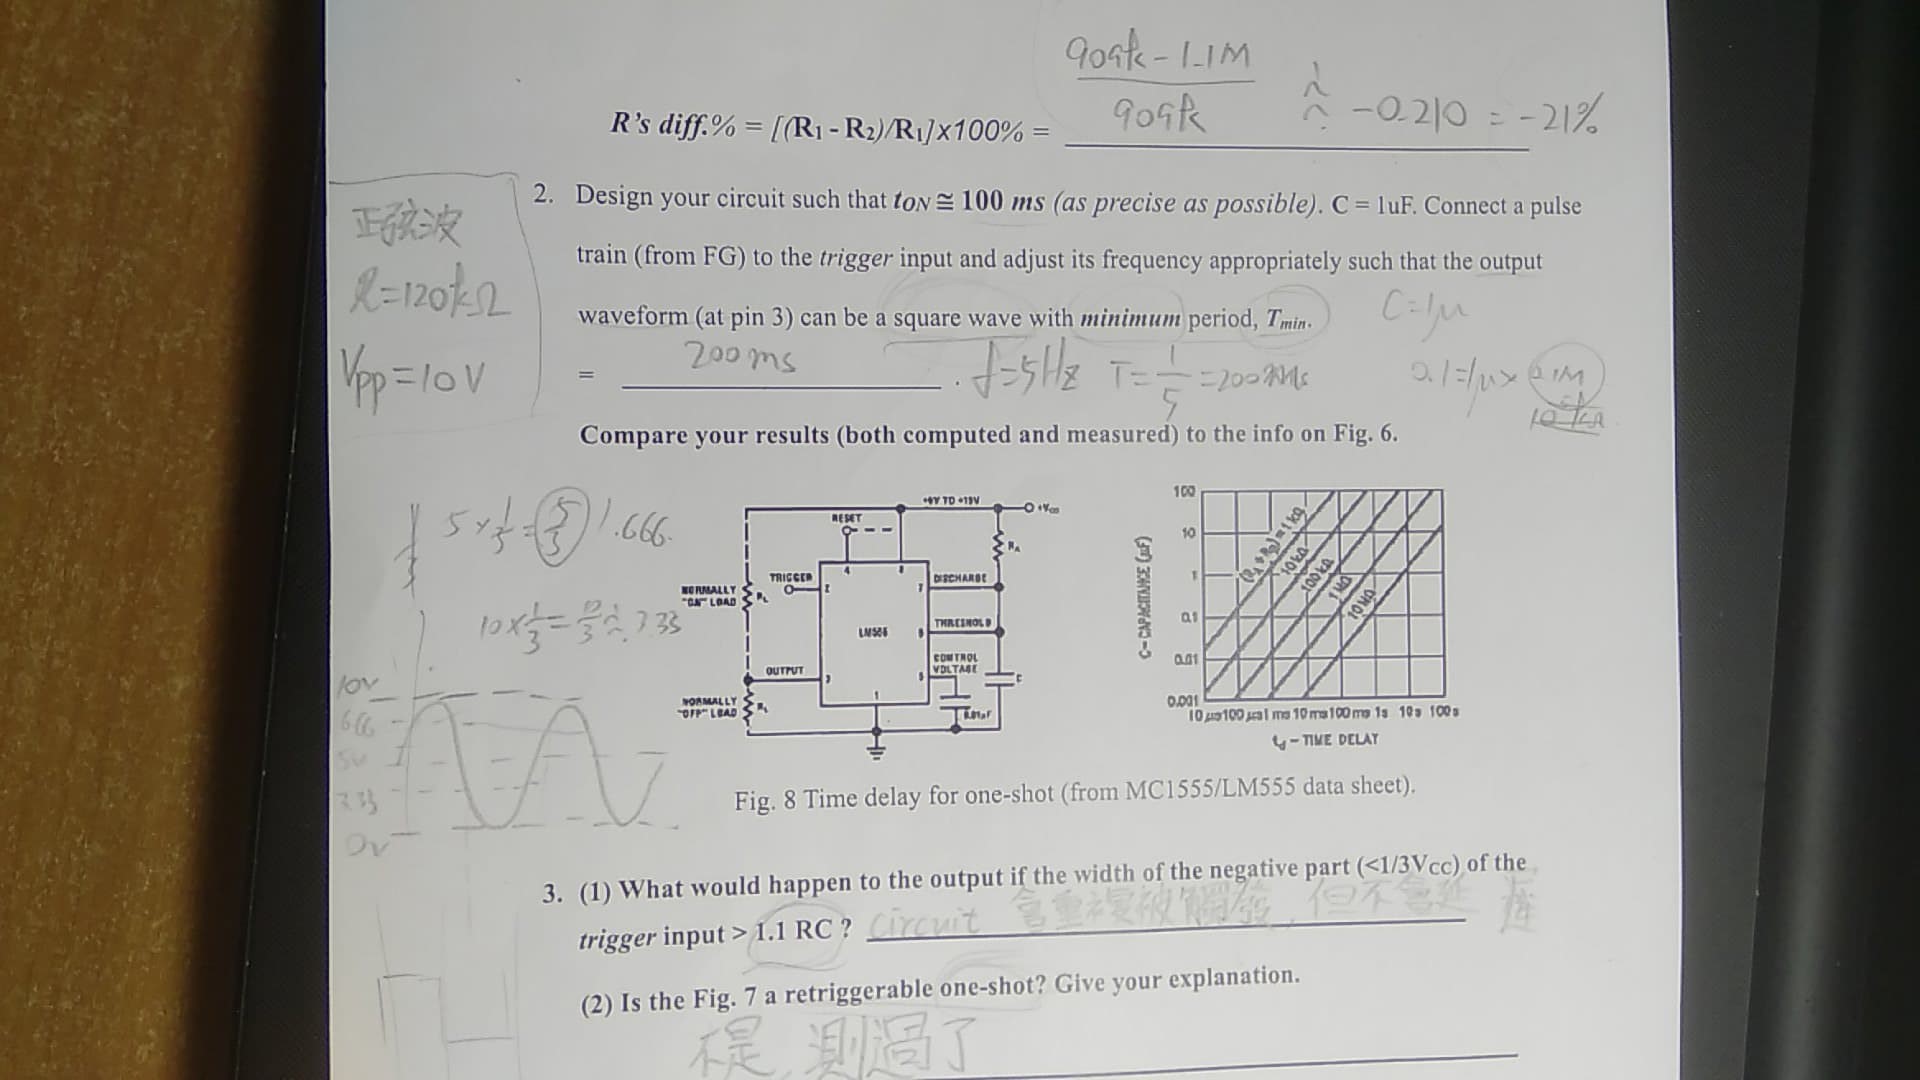 909k - 1.1M
R's diff.% = [(R₁ - R₂)/R₁]x100% = 909k ≈ -0.210 = -21%
正弦波
R=120kΩ
Vpp=10V
2. Design your circuit such that tON ≅ 100 ms (as precise as possible). C = 1uF. Connect a pulse
train (from FG) to the trigger input and adjust its frequency appropriately such that the output
waveform (at pin 3) can be a square wave with minimum period, Tmin.
C=1μ
= 200ms . f=5Hz T=1/5=200ms
0.1=1μ×0.1M
Compare your results (both computed and measured) to the info on Fig. 6.
5×1/3=5/3 1.666.
10×1/3=10/3≈3.33
10V
6.66
5V
3.33
0V
+4V TO +15V
+Vcc
RESET
RA
TRIGGER
DISCHARGE
NORMALLY
"ON" LOAD
RL
LM555
THRESHOLD
CONTROL
VOLTAGE
C
OUTPUT
NORMALLY
"OFF" LOAD
RL
0.01μF
100
10
1
0.1
0.01
0.001
C-CAPACITANCE (μF)
1 kΩ
10 kΩ
100 kΩ
1 MΩ
10 MΩ
10 μs 100 μs 1 ms 10 ms 100 ms 1s 10s 100s
td - TIME DELAY
Fig. 8 Time delay for one-shot (from MC1555/LM555 data sheet).
3. (1) What would happen to the output if the width of the negative part (<1/3Vcc) of the
trigger input > 1.1 RC ? circuit 會重複被觸發, 但不會延遲
(2) Is the Fig. 7 a retriggerable one-shot? Give your explanation.
不是, 測過了